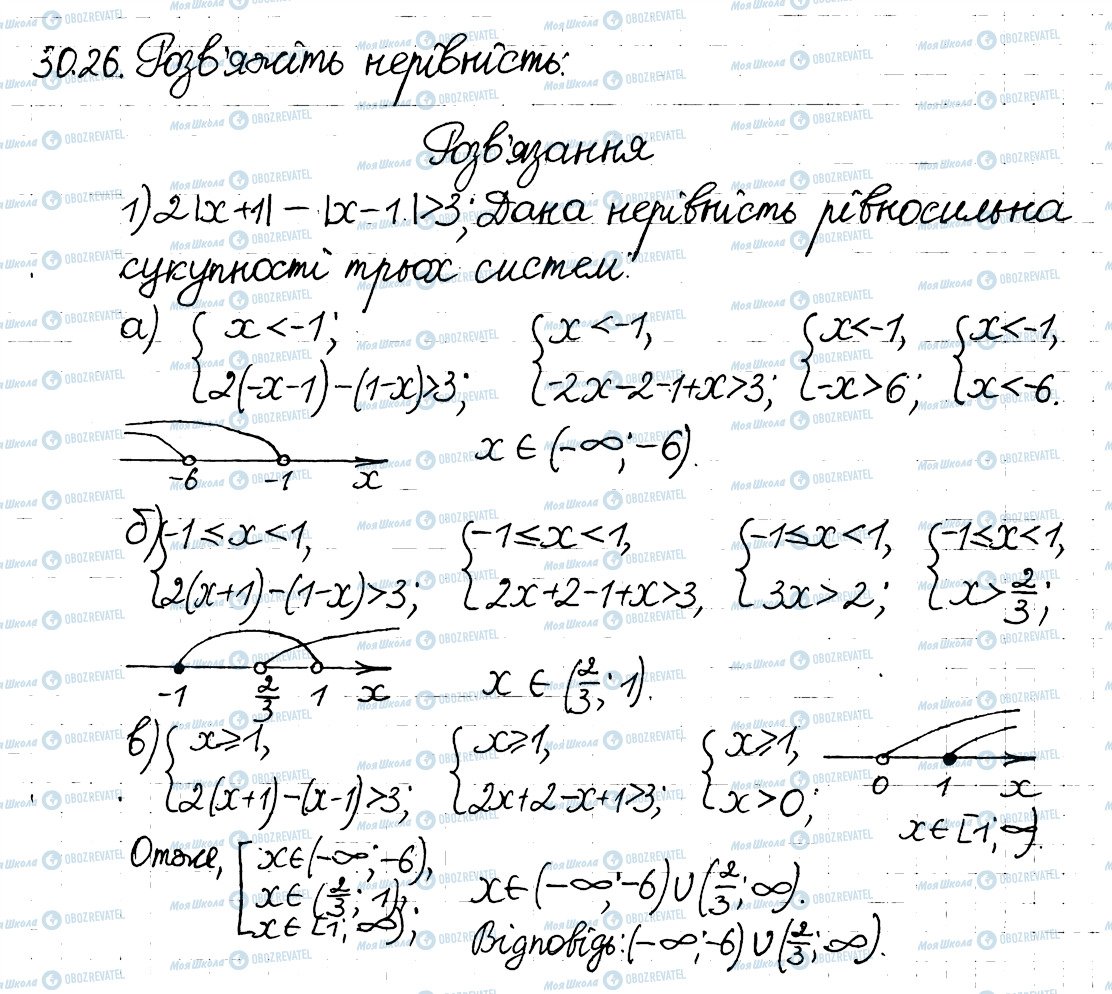 30.26. Розв'яжіть нерівність:
Розв'язання
1) 2|x+1| - |x-1|>3; Дана нерівність рівносильна
сукупності трьох систем:
а) { x<-1; 2(-x-1)-(1-x)>3; { x<-1, -2x-2-1+x>3; { x<-1, -x>6; { x<-1, x<-6.
-6 -1 x x ∈ (-∞; -6).
б) { -1≤x<1, 2(x+1)-(1-x)>3; { -1≤x<1, 2x+2-1+x>3, { -1≤x<1, 3x>2; { -1≤x<1, x>2/3;
-1 2/3 1 x x ∈ (2/3; 1).
в) { x≥1, 2(x+1)-(x-1)>3; { x≥1, 2x+2-x+1>3; { x≥1, x>0; 0 1 x
x ∈ [1; ∞).
Отже, [ x∈(-∞; -6), x∈(2/3; 1), x∈[1; ∞); x∈(-∞; -6)∪(2/3; ∞).
Відповідь: (-∞; -6)∪(2/3; ∞).
МояШкола OBOZREVATEL